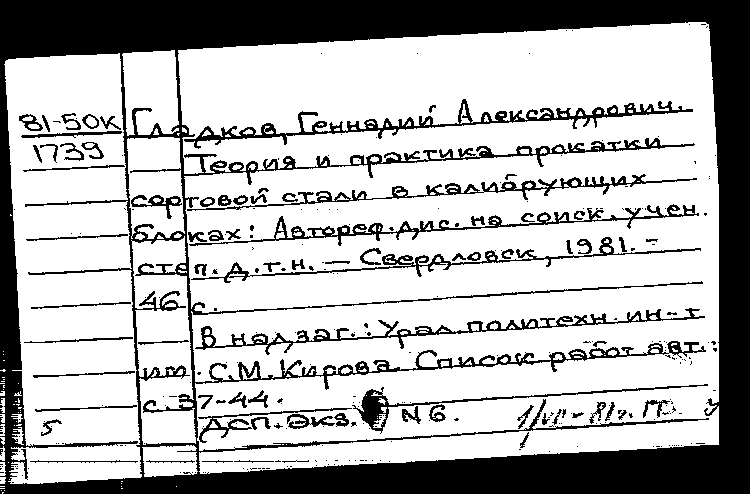 81-50К Гладков, Геннадий Александрович.
1739 Теория и практика прокатки
сортовой стали в калибрующих
блоках: Автореф. дис. на соиск. учен.
степ. д.т.н. — Свердловск, 1981. -
46 с.
В надзаг.: Урал. политехн. ин-т
им. С.М. Кирова. Список работ авт.:
с. 37-44.
5 ДСП. Экз. N 6.